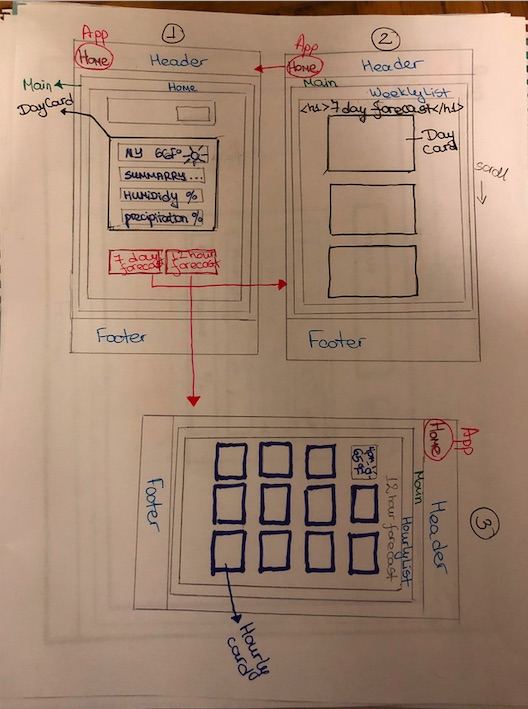 1
App
Home
Header
Main
Home
DayCard
NY 66F°
SUMMARRY...
HUMIDIDY %
precipitation %
7 day
forecast
12 hour
forecast
Footer
2
App
Home
Header
Main
WeeklyList
<h1>7 day forecast</h1>
Day
Card
scroll
Footer
3
App
Home
Header
Main
HourlyList
12 hour forecast
Footer
Hourly
card